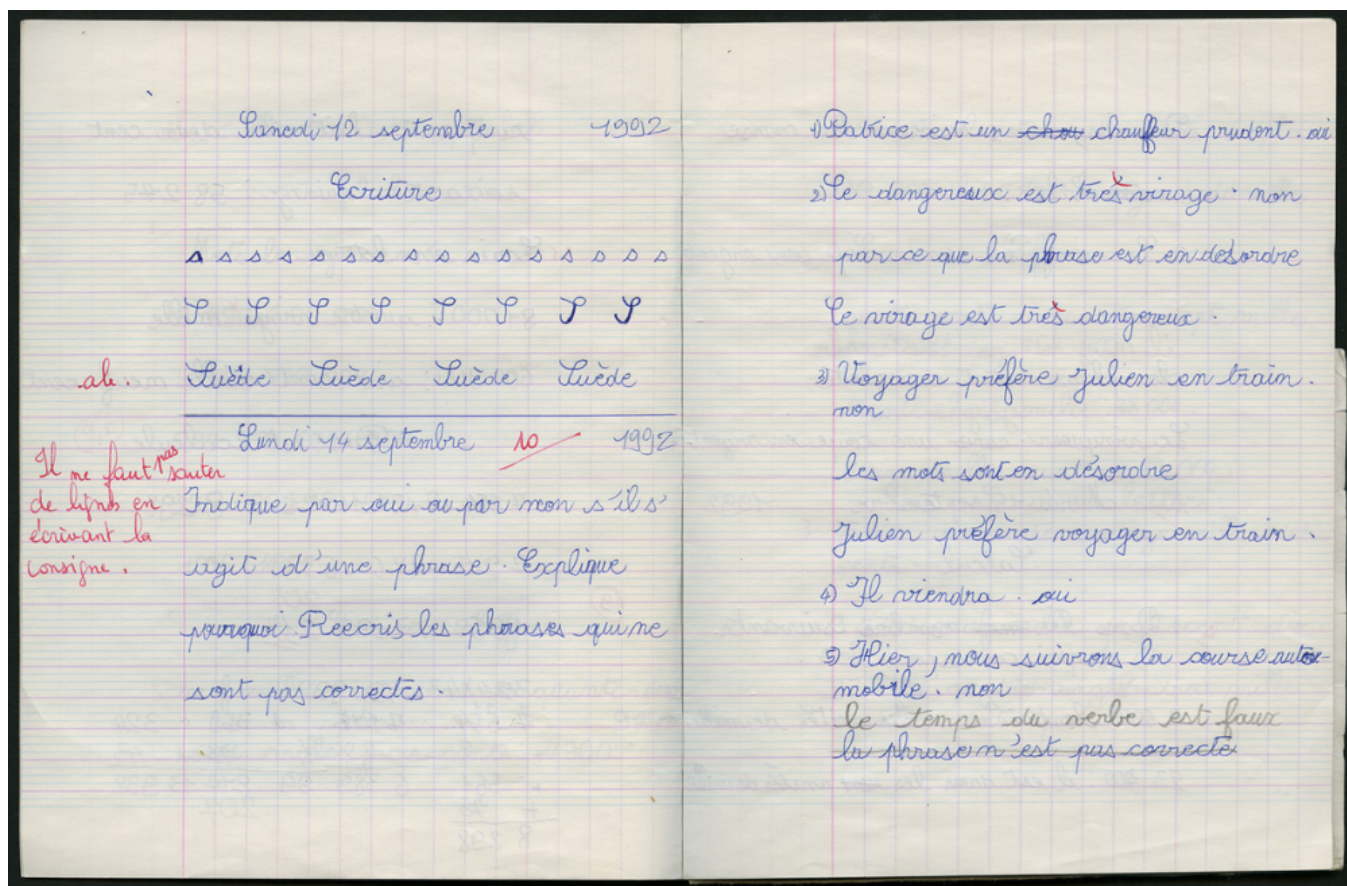 Samedi 12 septembre 1992
Ecriture
s s s s s s s s s s s s s s s s
S S S S S S S S
ab. Suède Suède Suède Suède
Lundi 14 septembre 10 1992
Il ne faut pas sauter
de lignes en
écrivant la
consigne.
Indique par oui ou par non s'il s'
agit d'une phrase. Explique
pourquoi. Reecris les phrases qui ne
sont pas correctes.
1) Patrice est un chou chauffeur prudent. oui
2) Le dangereux est très virage. non
parce que la phrase est en desordre
Le virage est très dangereux.
3) Voyager préfère Julien en train.
non
les mots sont en désordre
Julien préfère voyager en train.
4) Il viendra. oui
5) Hier, nous suivrons la course auto-
mobile. non
le temps du verbe est faux
la phrase n'est pas correcte